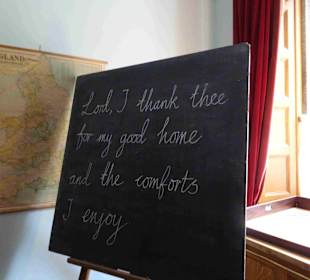 ENGLAND
Lord, I thank thee
for my good home
and the comforts
I enjoy